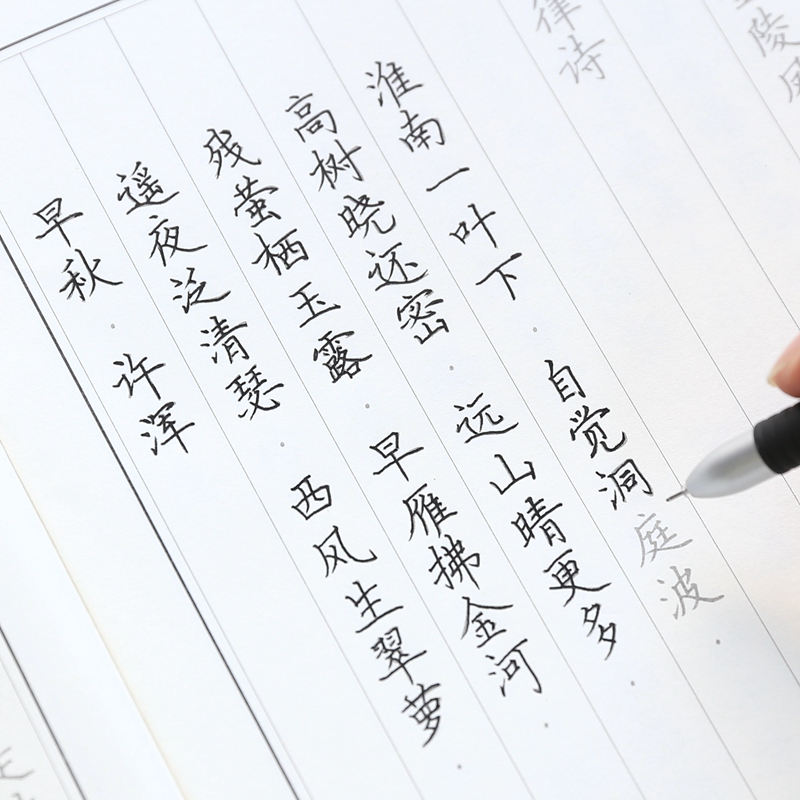 早秋·许浑
遥夜泛清瑟。西风生翠萝。
残萤栖玉露。早雁拂金河。
高树晓还密。远山晴更多。
淮南一叶下。自觉洞庭波。
律诗
陵